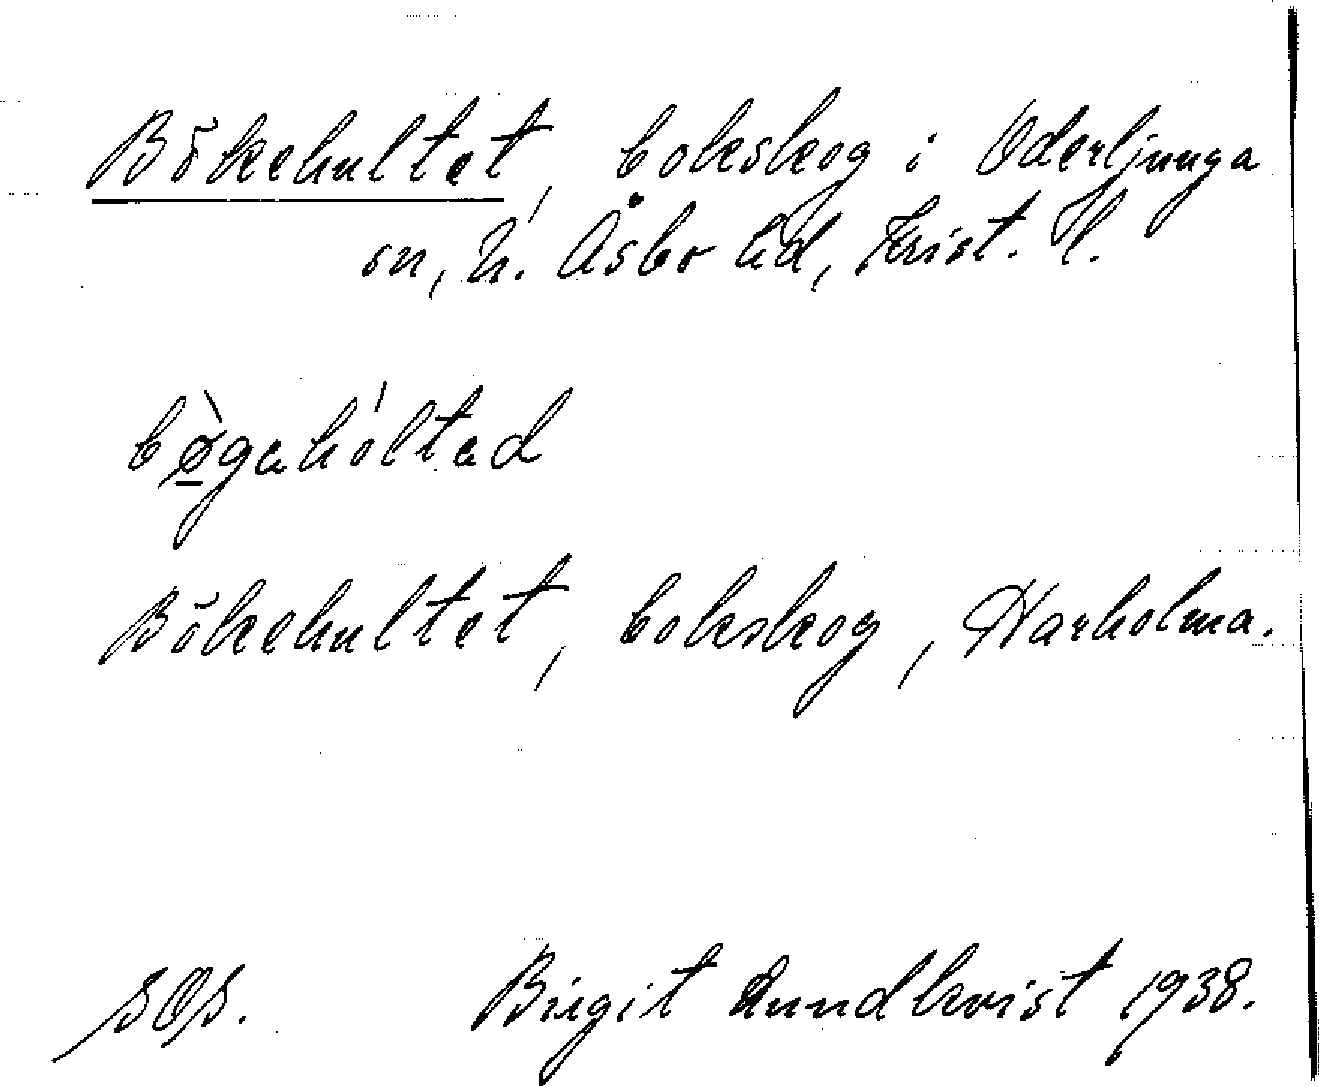 Bökehultet, bokskog i Oderljunga
sn, N. Åsbo hd, Krist. l.
bø̀gahóltad
Bökehultet, bokskog, Harholma.
SOS. Birgit Lundkvist 1938.